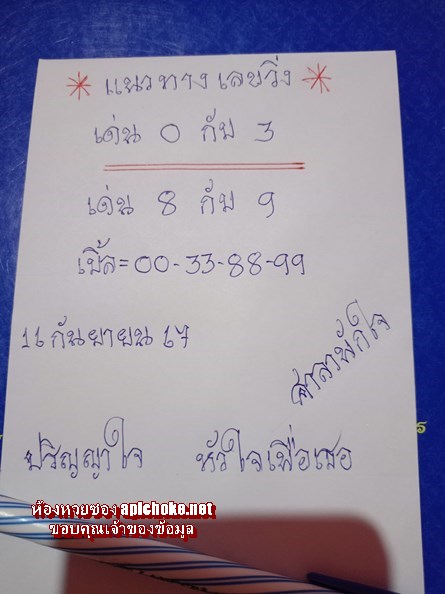 * แนวทาง เลขวิ่ง *
เด่น 0 กับ 3
เด่น 8 กับ 9
เบิ้ล=00-33-88-99
16 กันยายน 67
ศาลาพักใจ
ปริญญาใจ หัวใจเพื่อเธอ
ห้องหวยซอง apichoke.net
ขอบคุณเจ้าของข้อมูล